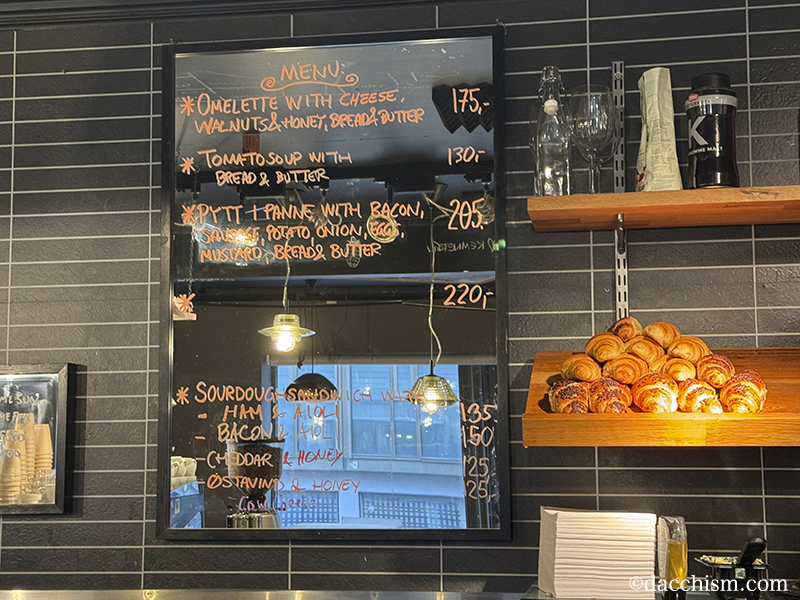 MENU:
* OMELETTE WITH CHEESE, 175,-
WALNUTS & HONEY, BREAD & BUTTER
* TOMATOSOUP WITH 130,-
BREAD & BUTTER
* PYTT I PANNE WITH BACON, 205,-
SAUSAGE, POTATO, ONION, EGG,
MUSTARD, BREAD & BUTTER
* 220,-
* SOURDOUGHSANDWICH WITH
- HAM & AIOLI 135
- BACON & AIOLI 150
- CHEDDAR & HONEY 125
- ØSTAVIND & HONEY 125,-
COW CHEESE
K
MALT
©dacchism.com